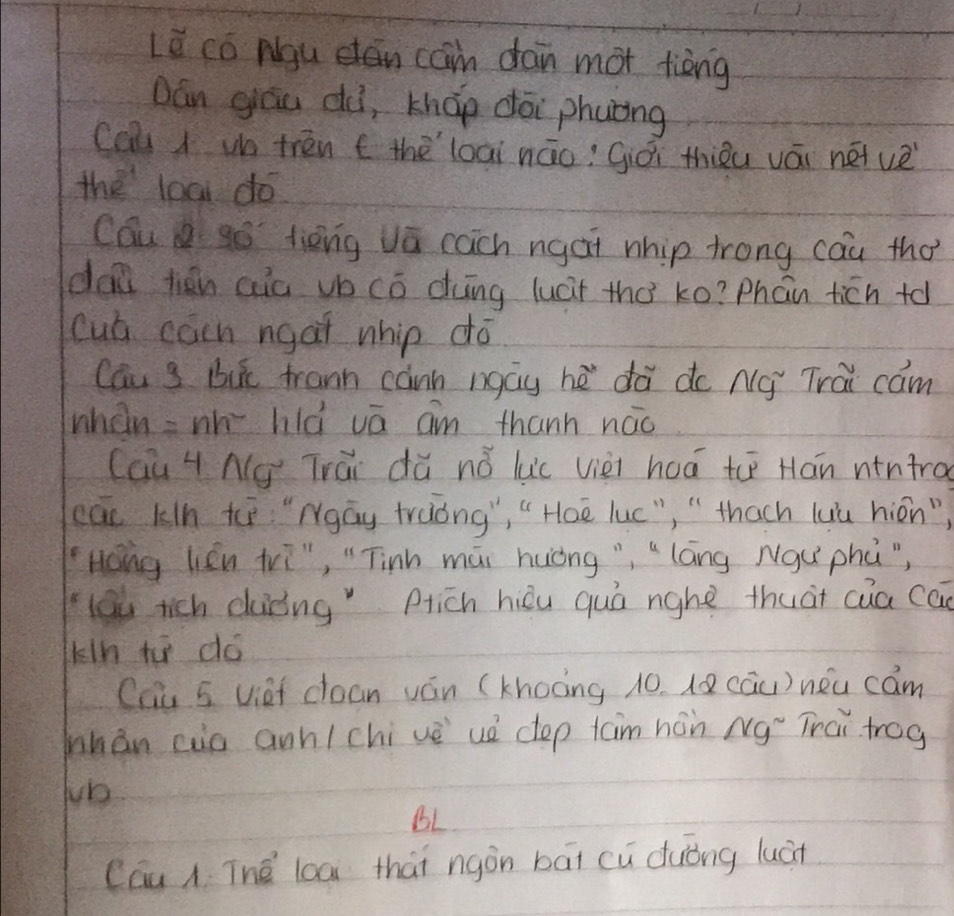 Lẽ có Ngu đàn cầm đàn một tiếng
Dân giàu đủ, khắp đòi phương
Câu 1 vb trên € thể loại nào? Giới thiệu vài nét về
thể loại đó
Câu 2 số tiếng và cách ngắt nhịp trong câu thơ
đầu tiên của vb có đúng luật thơ ko? Phân tích td
của cách ngắt nhịp đó
Câu 3 Bức tranh cảnh ngày hè đã đc Ng~ Trãi cảm
nhận = nh~ h/a và âm thanh nào
Câu 4 Ng~ Trãi đã nỗ lực việt hoá từ Hán ntn trog
các k/h từ: "Ngày trường", "Hoè lục", "thạch lựu hiên",
"Hồng liên trì", "Tịnh mùi hương", "làng Ngư phủ",
"lầu tịch dương" Ptích hiệu quả nghệ thuật của các
k/h từ đó
Câu 5 viết đoạn văn (khoảng 10. 12 câu) nêu cảm
nhận của anh/chị về vẻ đẹp tâm hồn Ng~ Trãi trog
vb
BL
Câu 1. Thể loại thất ngôn bát cú đường luật